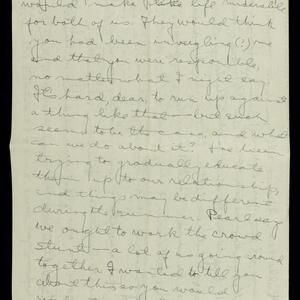 would make life miserable
for both of us. They would think
you had been inveigling (?) me
and that you were responsible,
no matter what I might say
It's hard, dear, to run up against
a thing like that — but such
seems to be the case, and what
can we do about it? I've been
trying to gradually educate
them up to our relationship
and things may be different
during the summer. Pearl says
we ought to work the crowd
stunt — a lot of us going round
together. I wanted to tell you
about this so you would